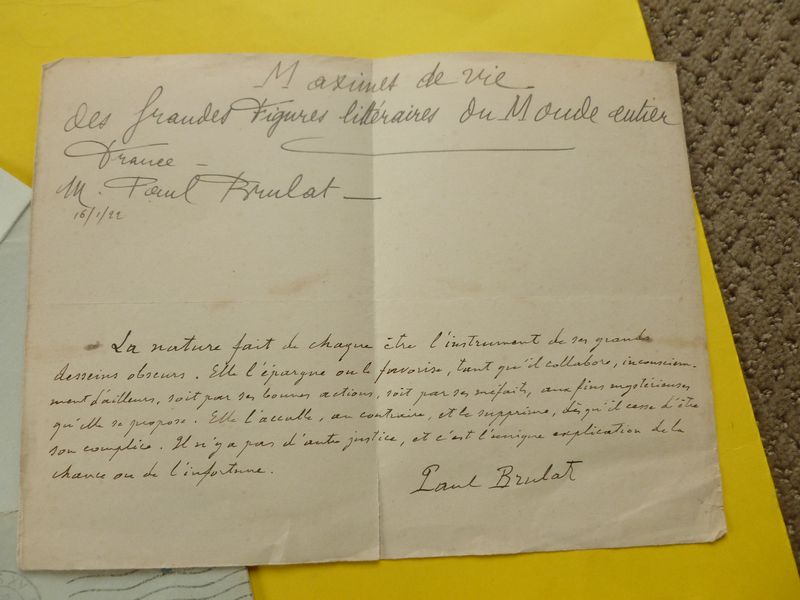 Maximes de vie -
des Grandes Figures littéraires du Monde entier
France -
M. Paul Brulat -
16/1/22
La nature fait de chaque être l'instrument de ses grands
desseins obscurs. Elle l'épargne ou le favorise, tant qu'il collabore, inconsciem-
ment d'ailleurs, soit par ses bonnes actions, soit par ses méfaits, aux fins mystérieuses
qu'elle se propose. Elle l'acculle, au contraire, et le supprime, dès qu'il cesse d'être
son complice. Il n'y a pas d'autre justice, et c'est l'unique explication de la
chance ou de l'infortune.
Paul Brulat